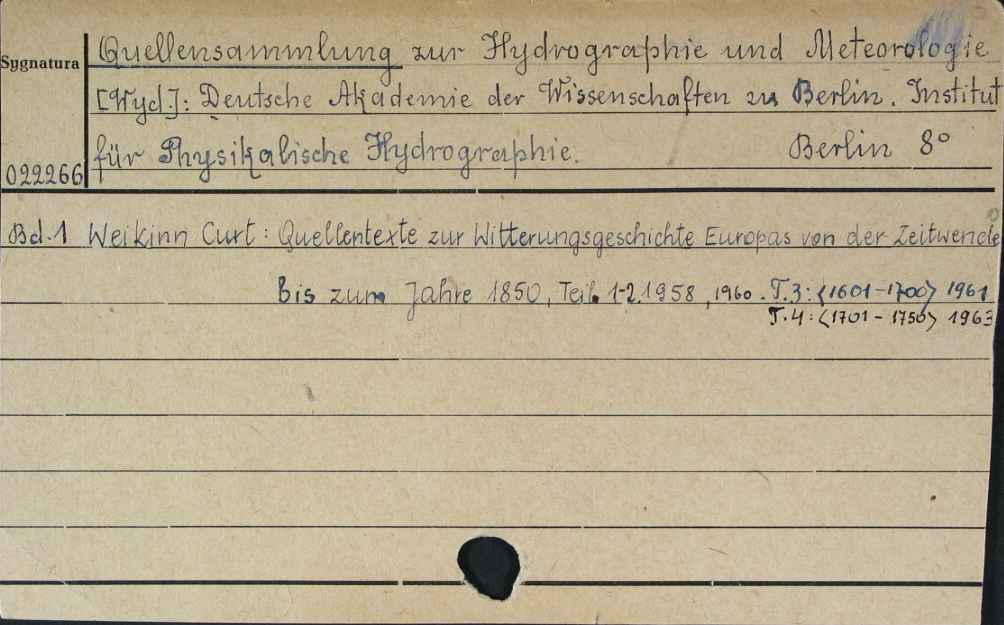 Quellensammlung zur Hydrographie und Meteorologie
Sygnatura
[Wyd.]: Deutsche Akademie der Wissenschaften zu Berlin. Institut
für Physikalische Hydrographie. Berlin 8°
022266
Bd.1 Weikinn Curt: Quellentexte zur Witterungsgeschichte Europas von der Zeitwende
bis zum Jahre 1850, Teil. 1-2.1958, 1960. T.3: <1601-1700> 1961
T.4: <1701-1750> 1963